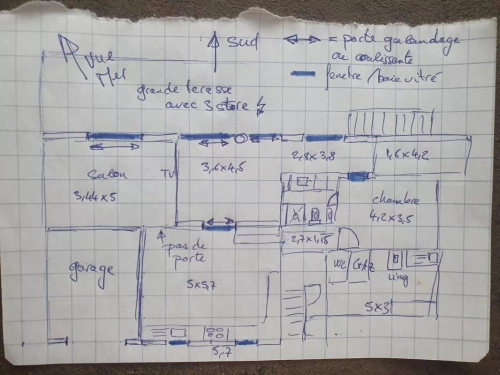 vue
Mer
Sud
= porte galandage
ou coulissante
fenetre/baie vitré
grande terasse
avec 3 store
Salon
3,44x5
TV
3,6x4,5
2,8x3,8
1,6x4,2
chambre
4,2x3,5
2,7x1,25
pas de
porte
garage
5x5,7
WC
GAZ
Ling
5x3
5,7